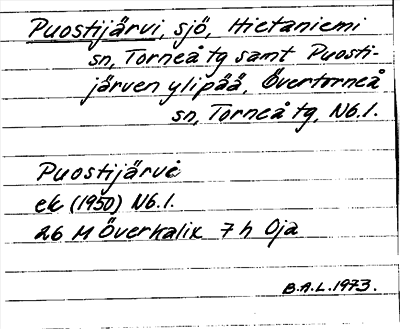 Puostijärvi, sjö, Hietaniemi
sn, Torneå tg samt Puosti-
järven ylipää, Övertorneå
sn, Torneå tg, Nb.l.
Puostijärvi
ek (1950) Nb.l.
26 M Överkalix 7 h Oja
B.A.L. 1973.